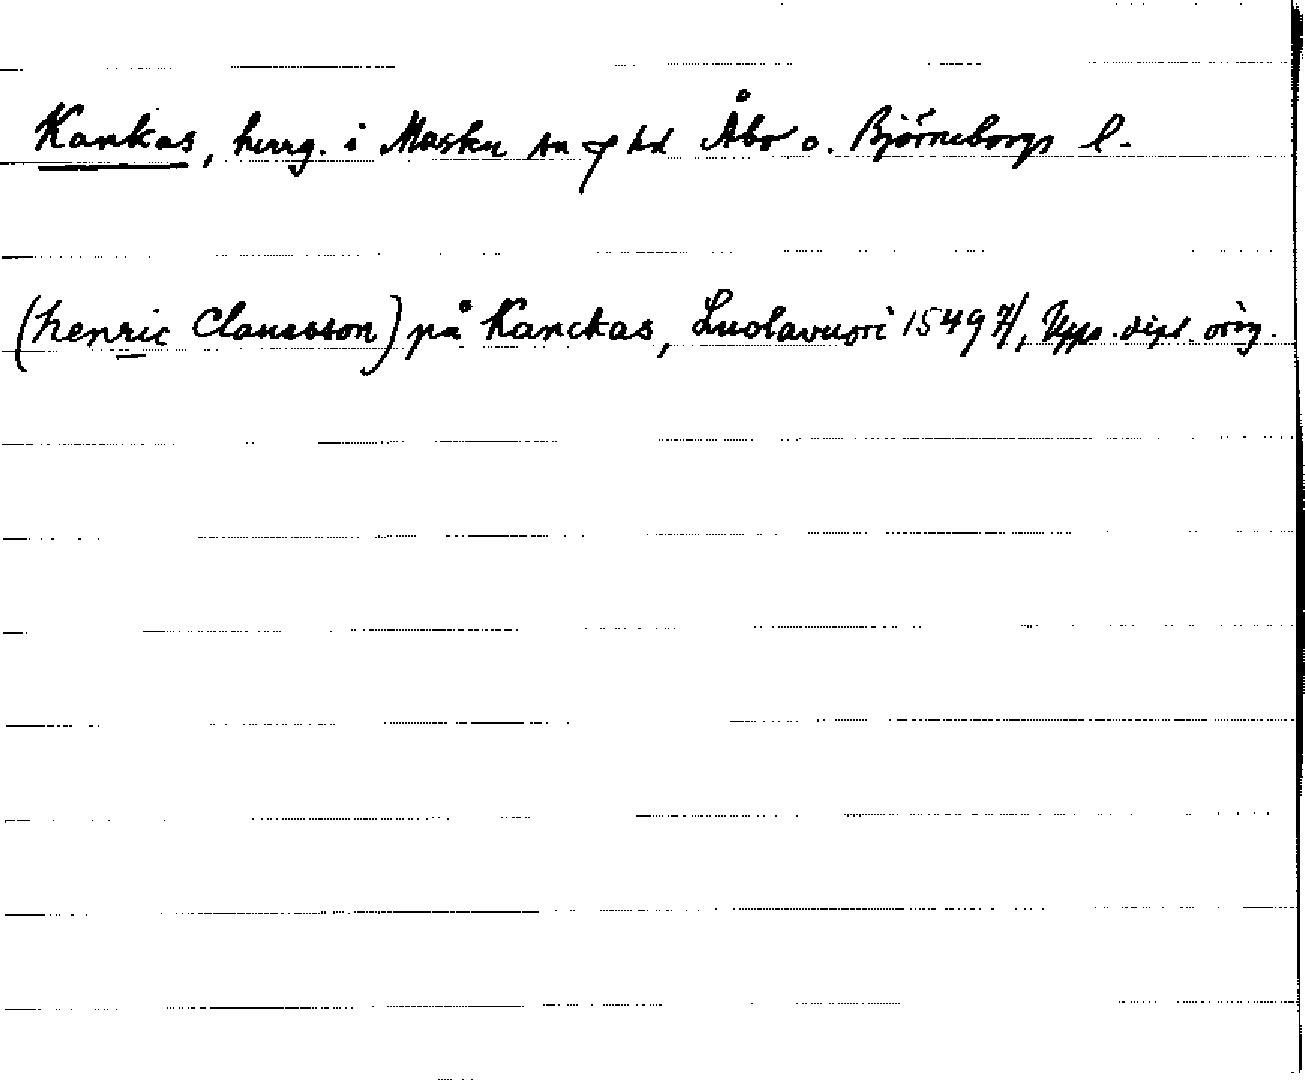 Kankas, herrg. i Masku sn o hd Åbo o. Björneborgs l.
(henric Claussson) på Kanckas, Luolavuori 1549 Upps. dipl. orig.